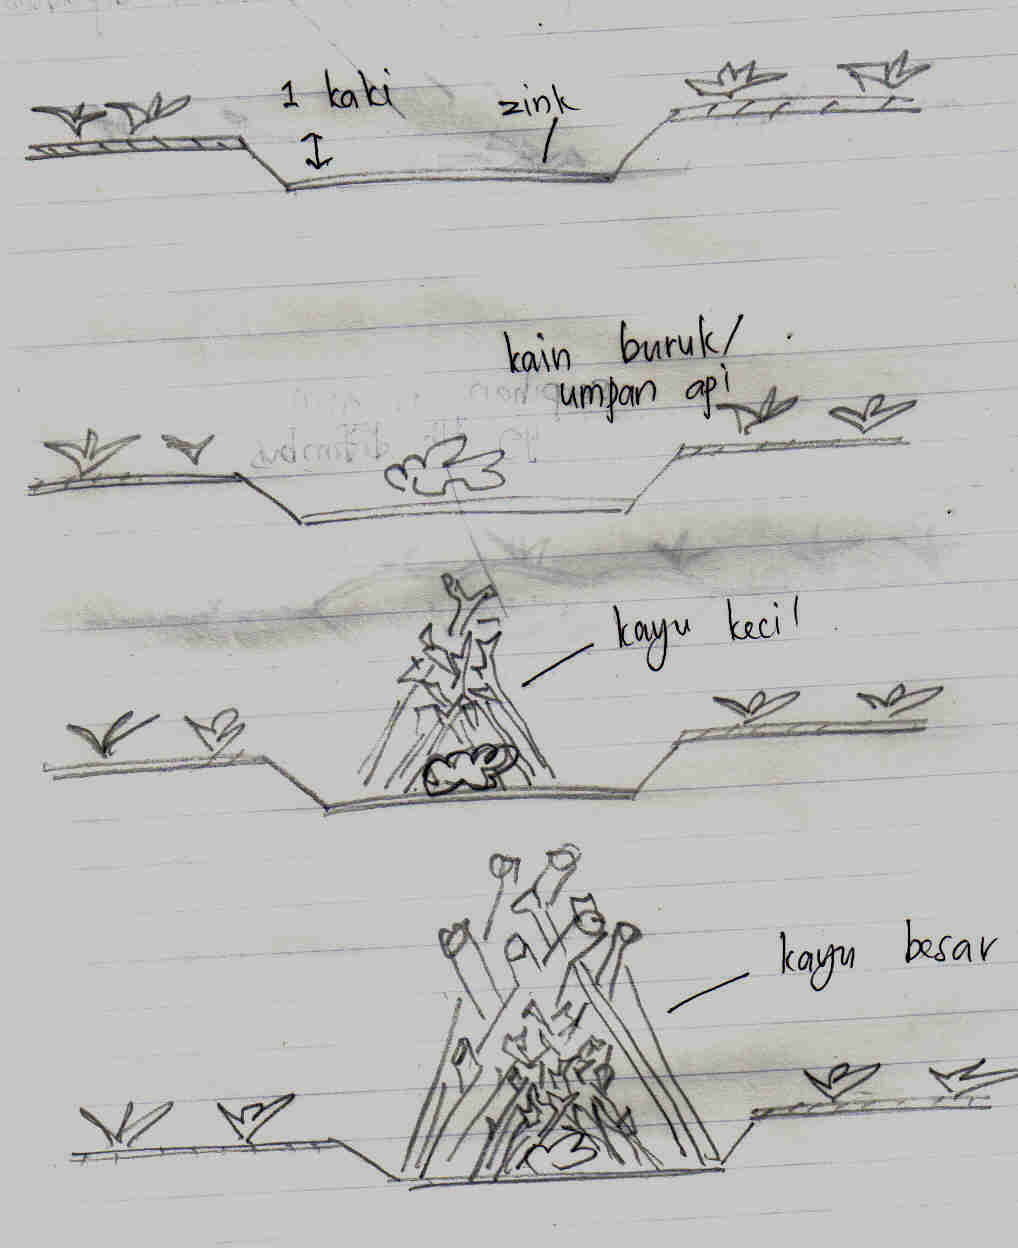 1 kaki
zink
kain buruk/
umpan api
kayu kecil
kayu besar